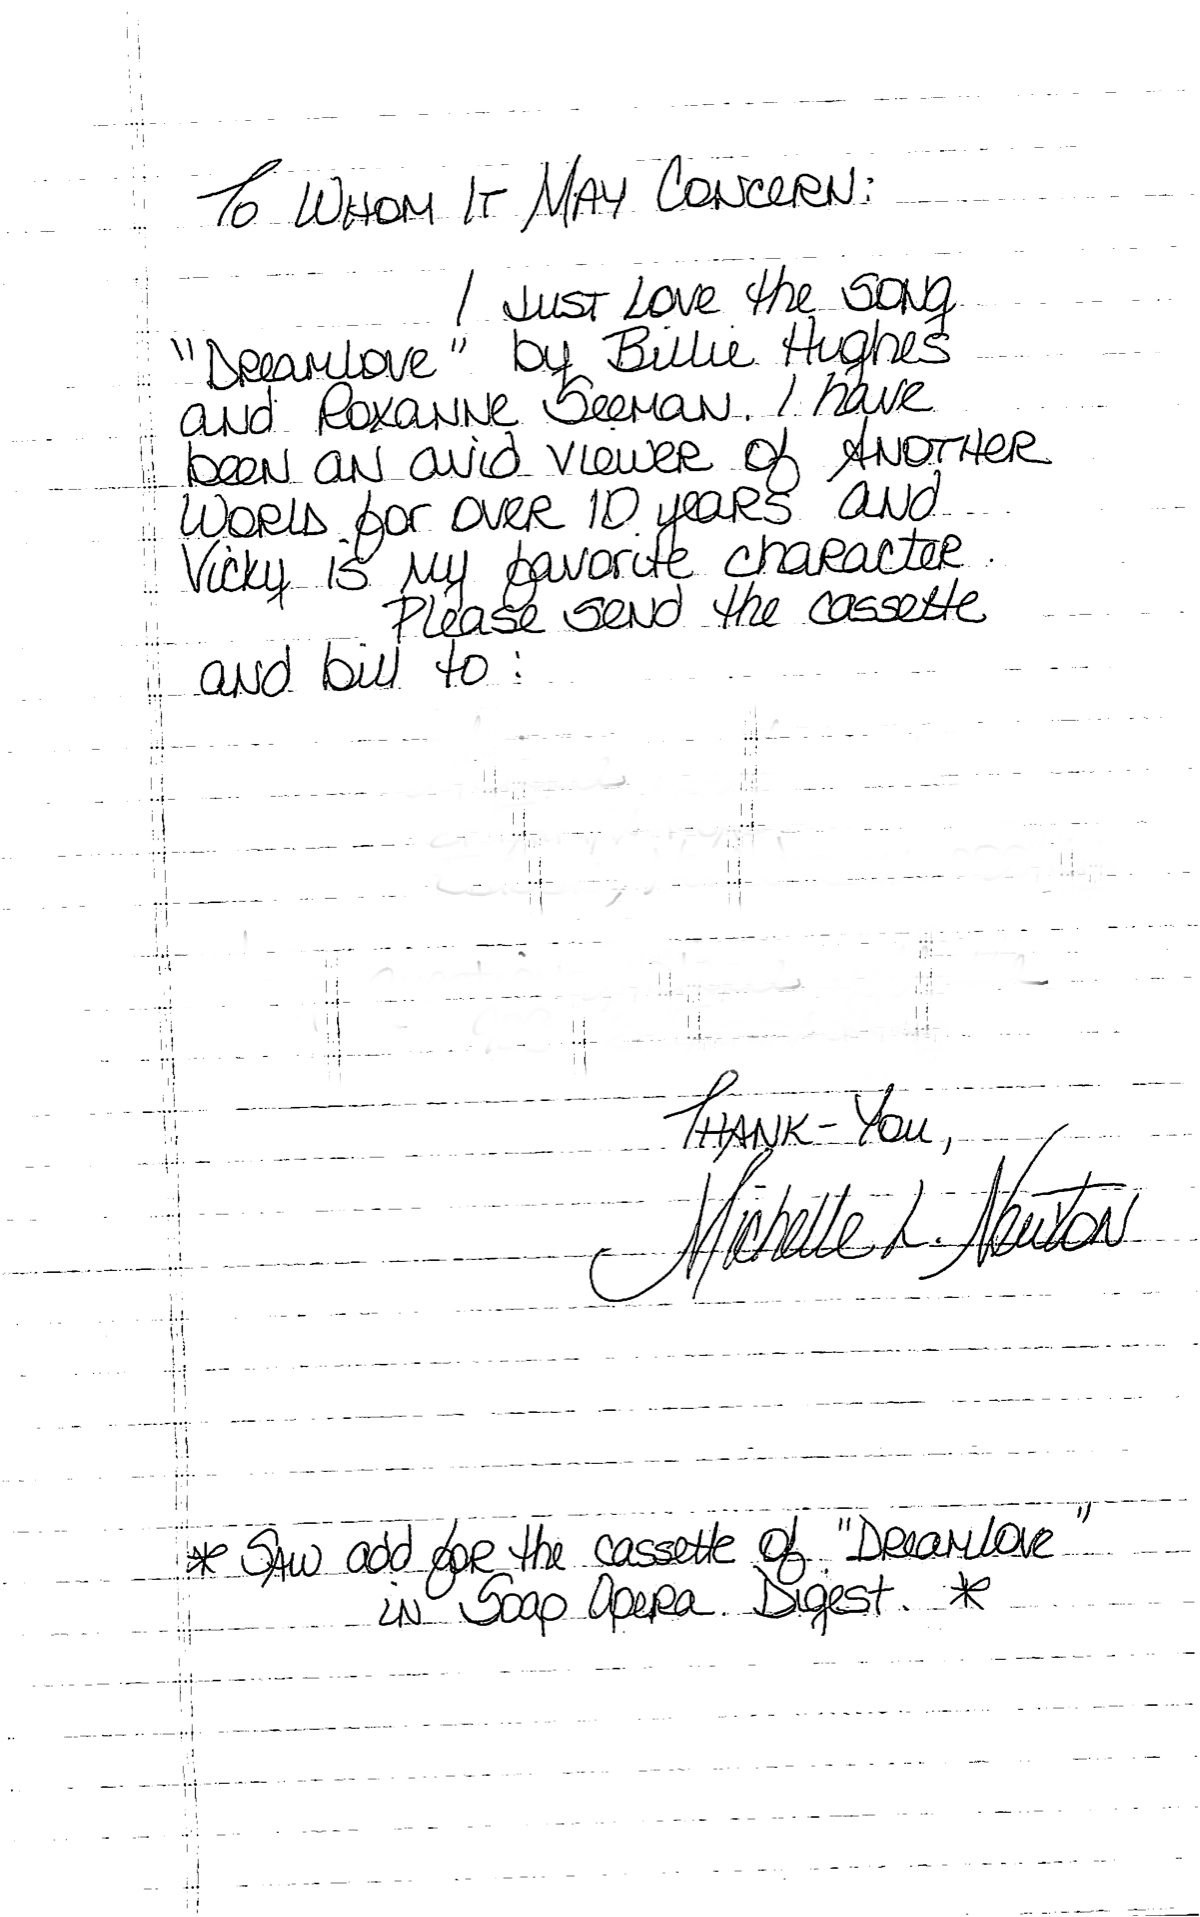 To Whom It May Concern:
I just love the song
"Dreamlove" by Billie Hughes
and Roxanne Seeman. I have
been an avid viewer of Another
World for over 10 years and
Vicky is my favorite character.
Please send the cassette
and bill to:
Thank-You,
Michelle L. Newton
* Saw add for the cassette of "Dreamlove"
in Soap Opera Digest. *